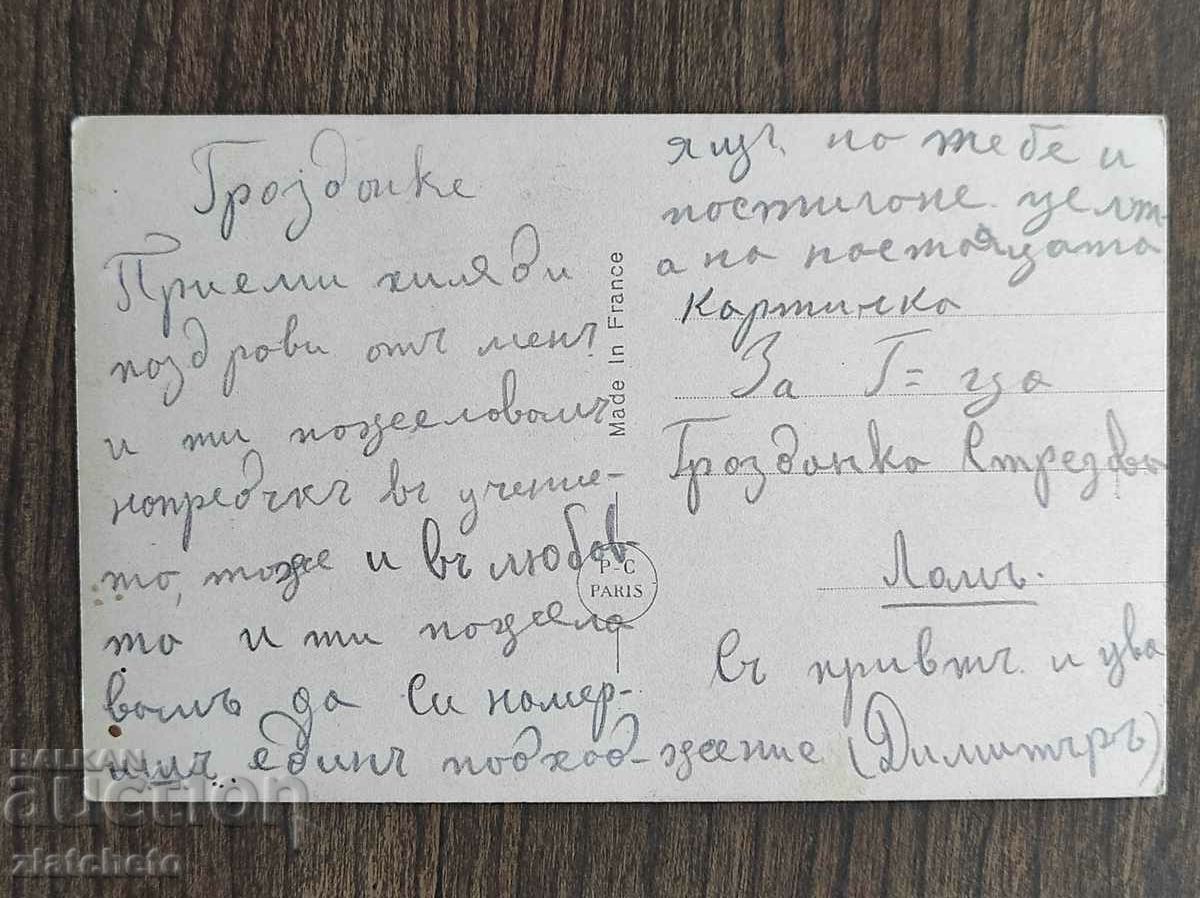 Гроздонке
Приеми хиляди
поздрави отъ менъ
и ти пожеловамъ
напредъкъ въ учение-
то, тоже и въ любов-
та и ти пожела
вамъ да си намер-
ишъ единъ подход-
ящъ по тебе и
постигоне целт-
а на настоящата
Картичка
За Г=ца
Гроздонка Стрезова
Ломъ.
Съ приветъ и ува
жение (Димитъръ)
Made In France
P-C
PARIS
BALKAN
auction
zlatcheto